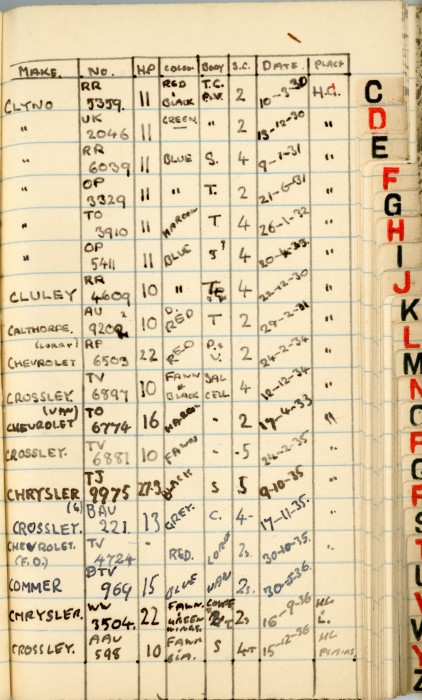 MAKE. No. H.P COLOUR BODY S.C. DATE. PLACE
CLYNO RR 5359. 11 RED & BLACK T.C. 2 10-3-30 H.G.
" UK 2046 11 GREEN " 2 13-12-30 "
" RR 6039 11 BLUE S. 4 9-1-31 "
" OP 3329 11 " T. 2 21-6-31 "
" TO 3910 11 MAROON T 4 26-1-32 "
" OP 5411 11 BLUE S? 4 "
CLULEY RR 4609 10 " 4 22-12-30 "
CALTHORPE. AU 10 RED T 2 "
(LORRY) CHEVROLET RR 6503 22 RED 2 24-2-34 "
CROSSLEY. TV 6897 10 FAWN & BLACK SAL 4 12-12-34 "
(VAN) CHEVROLET TO 6774 16 MAROON " 2 19-4-33 "
CROSSLEY. TV 6881 10 FAWN " 5 24-2-35 "
CHRYSLER TJ 9975 27-3 BLACK S 5 9-10-35 "
CROSSLEY. BAU 221. 13 GREY. C. 4- 17-11-35. "
CHEVROLET. (F.O.) TV 4724 - RED. 2s 30-10-35. "
COMMER BTV 969 15 BLUE VAN 2s. 30-5-36. "
CHRYSLER. 3504. 22 FAWN GREEN WINGS. COUPE 16-9-36
CROSSLEY. AAU 598 10 FAWN S 15-12-36 PLAINS
C
D
E
F
G
H
I
J
K
L
M
N
O
P
Q
R
S
T
U
V
W
Y
Z